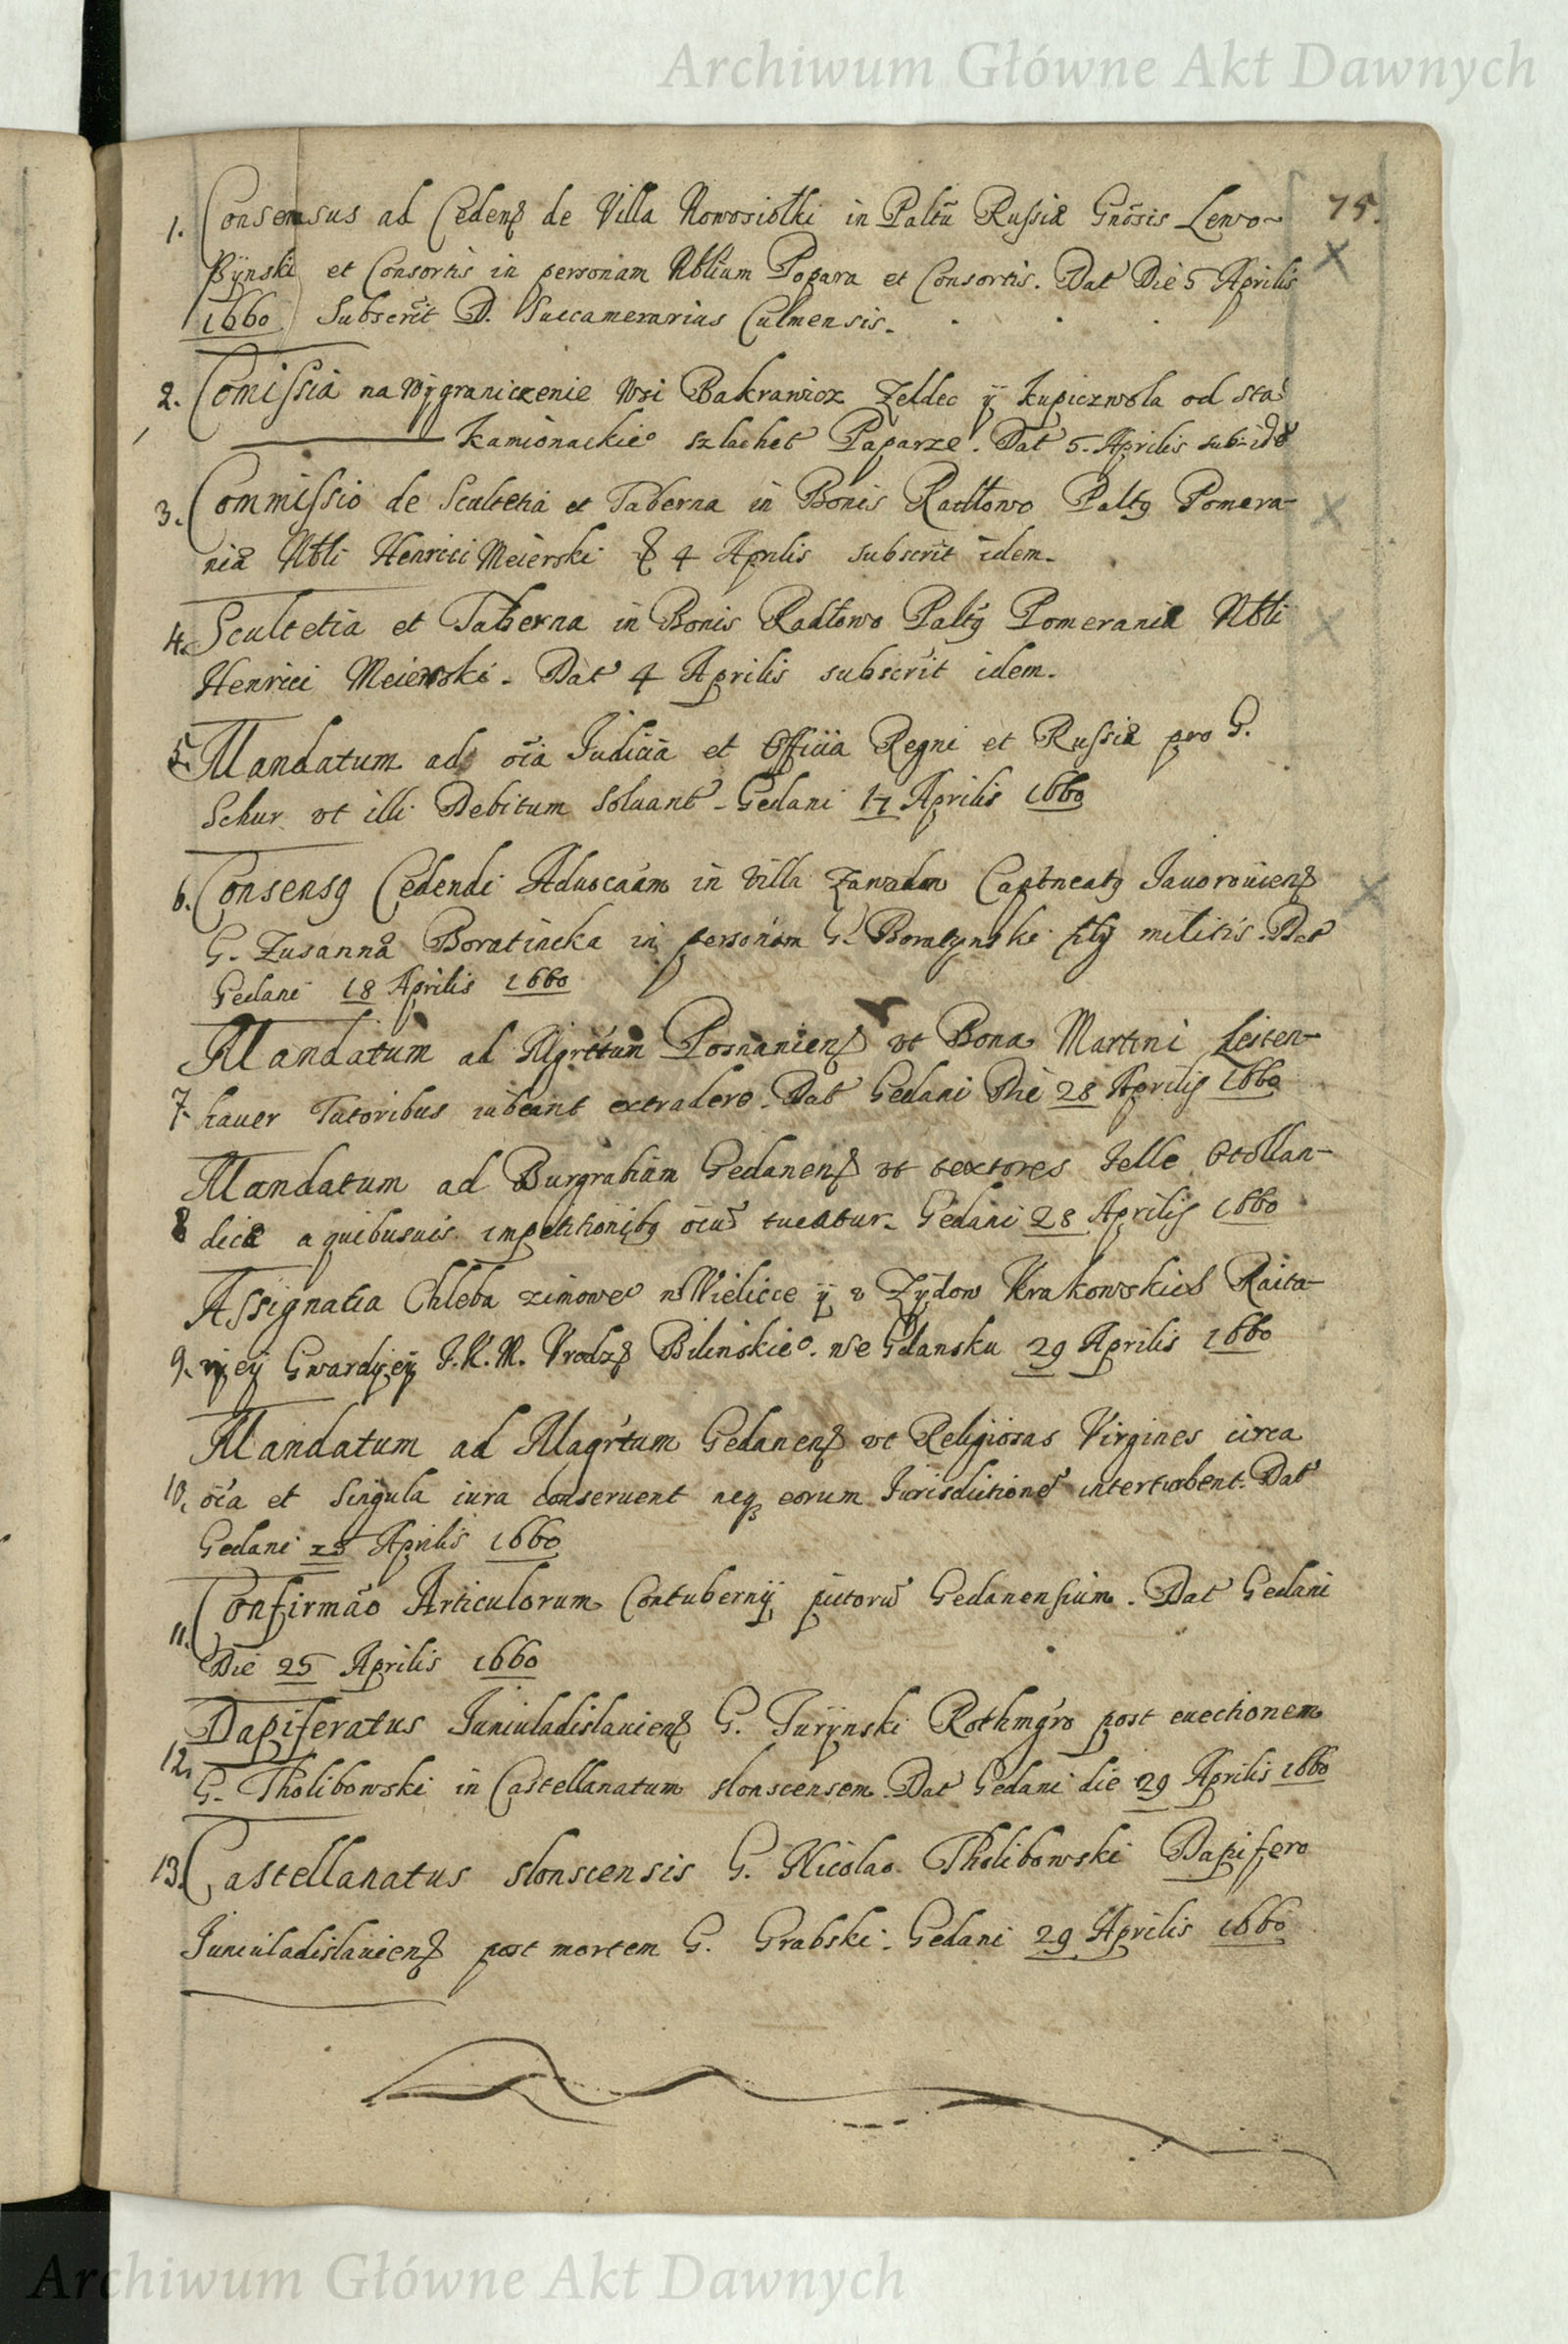 Archiwum Główne Akt Dawnych
75.
1. Consensus ad Cedenꝭ de Villa Nowosiołki in Paltũ Russiæ Gnosis Lewo-
pÿnski et Consortis in personam Nblium Popara et Consortis. Dat Die 5 Aprilis
1660 Subscrit D. Succamerarius Culmensis.
2. Comissia na wÿgraniczenie Wsi Bakrawicz Zeldec ÿ Kupiczwola od sta
Kamionackieº szlachet Paparze. Dat 5. Aprilis sub: ide
3. Commissio de Scultetia et Taberna in Bonis Radłowo Paltꝰ Pomera-
niæ Nbli Henrici Meierski 4 Aprilis subscrit idem.
4. Scultetia et Taberna in Bonis Radłowo Paltꝰ Pomeraniæ Nbli
Henrici Meierski. Dat 4 Aprilis subscrit idem.
5. Mandatum ad oĩa Iudicia et Officia Regni et Russiæ pro G.
Schur vt illi Debitum soluant. Gedani 17 Aprilis 1660
6. Consensꝰ Cedendi Aduocaam in villa Zawadow Captneatꝰ Iauorouienꝭ
G. Zusannæ Boratincka in personam G. Boratynski filÿ militis. Dat
Gedani 18 Aprilis 1660
Mandatum ad Mgrtum Posnanienꝭ vt Bona Martini Leiten-
7. hauer Tutoribus iubeant extradere. Dat Gedani Die 28 Aprilis 1660
Mandatum ad Burgrabium Gedanenꝭ vt textores Telle Otollan-
8 dicæ a quibusuis impetitionibꝰ tueatur. Gedani 28 Aprilis 1660
Assignatia Chleba zimoweº w Wielicce ÿ v Zÿdow Krakowskich Raita-
9. rÿeÿ Gwardÿeÿ J.K.M. Vrodzꝭ Bilinskieº. we Gdansku 29 Aprilis 1660
Mandatum ad Magrtum Gedanenꝭ vt Religiosas Virgines circa
10. oĩa et singula iura conseruent neqꝫ eorum Iurisdictione interturbent. Dat
Gedani Aprilis 1660
11. Confirmão Articulorum Contubernÿ Gedanensium. Dat Gedani
Die 25 Aprilis 1660
Dapiferatus Iuniuladislauienꝭ G. Turÿnski Rothmgro post euectionem
12. G. Tholibowski in Castellanatum slonscensem. Dat Gedani die 29 Aprilis 1660
13. Castellanatus slonscensis G. Nicolao Tholibowski Dapifero
Iuniuladislauienꝭ post mortem G. Grabski. Gedani 29 Aprilis 1660
Archiwum Główne Akt Dawnych